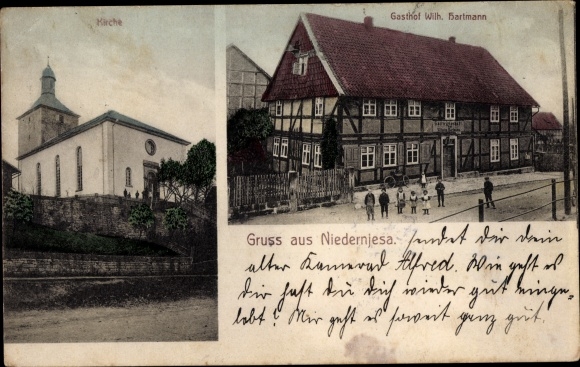 Kirche
Gasthof Wilh. Hartmann
Gruss aus Niedernjesa. sendet dir dein
alter Kamerad Alfred. Wie geht es
dir hast du dich wieder gut einge-
lebt? Mir geht es soweit ganz gut.